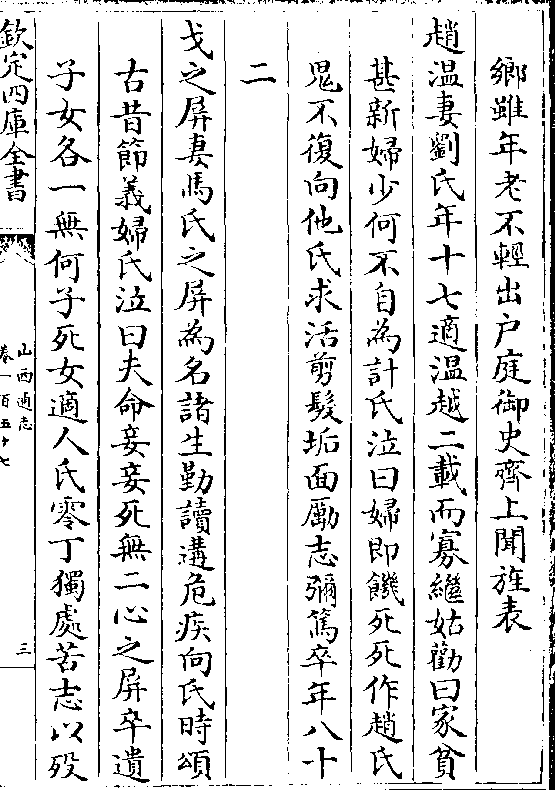 鄉雖年老不輕出户庭御史齊上聞旌表
趙温妻劉氏年十七適温越二載而寡繼姑勸曰家貧
甚新婦少何不自為計氏泣曰婦即饑死死作趙氏
鬼不復向他氏求活剪髮垢面勵志彌篤卒年八十
二
戈之屏妻馬氏之屏為名諸生勤讀遘危疾向氏時頌
古昔節義婦氏泣曰夫命妾妾死無二心之屏卒遺
子女各一無何子死女適人氏零丁獨處苦志以殁
欽定四庫全書
山西通志
卷一百五十七
三